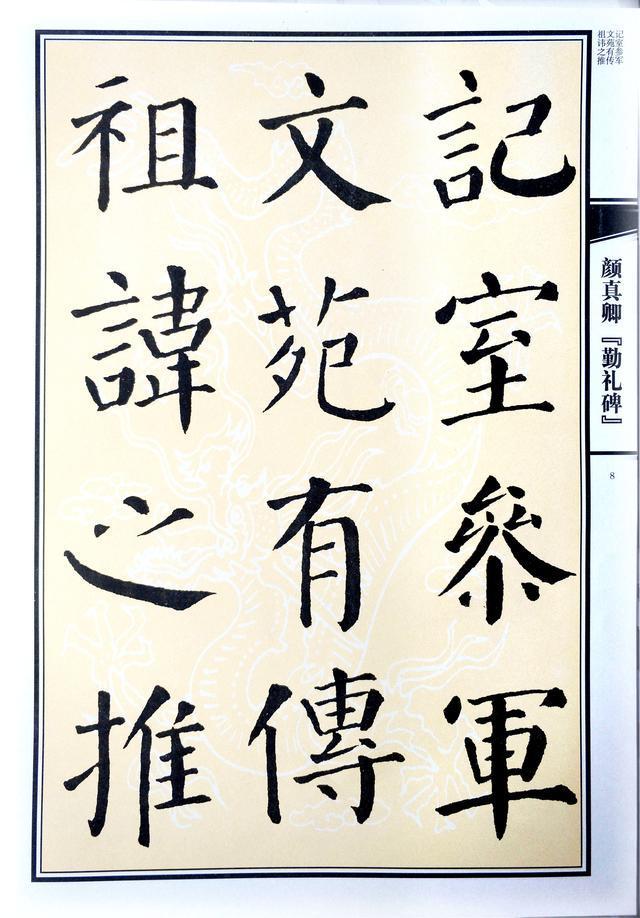 記室參軍
文苑有傳
祖諱之推
记室参军
文苑有传
祖讳之推
颜真卿『勤礼碑』
8